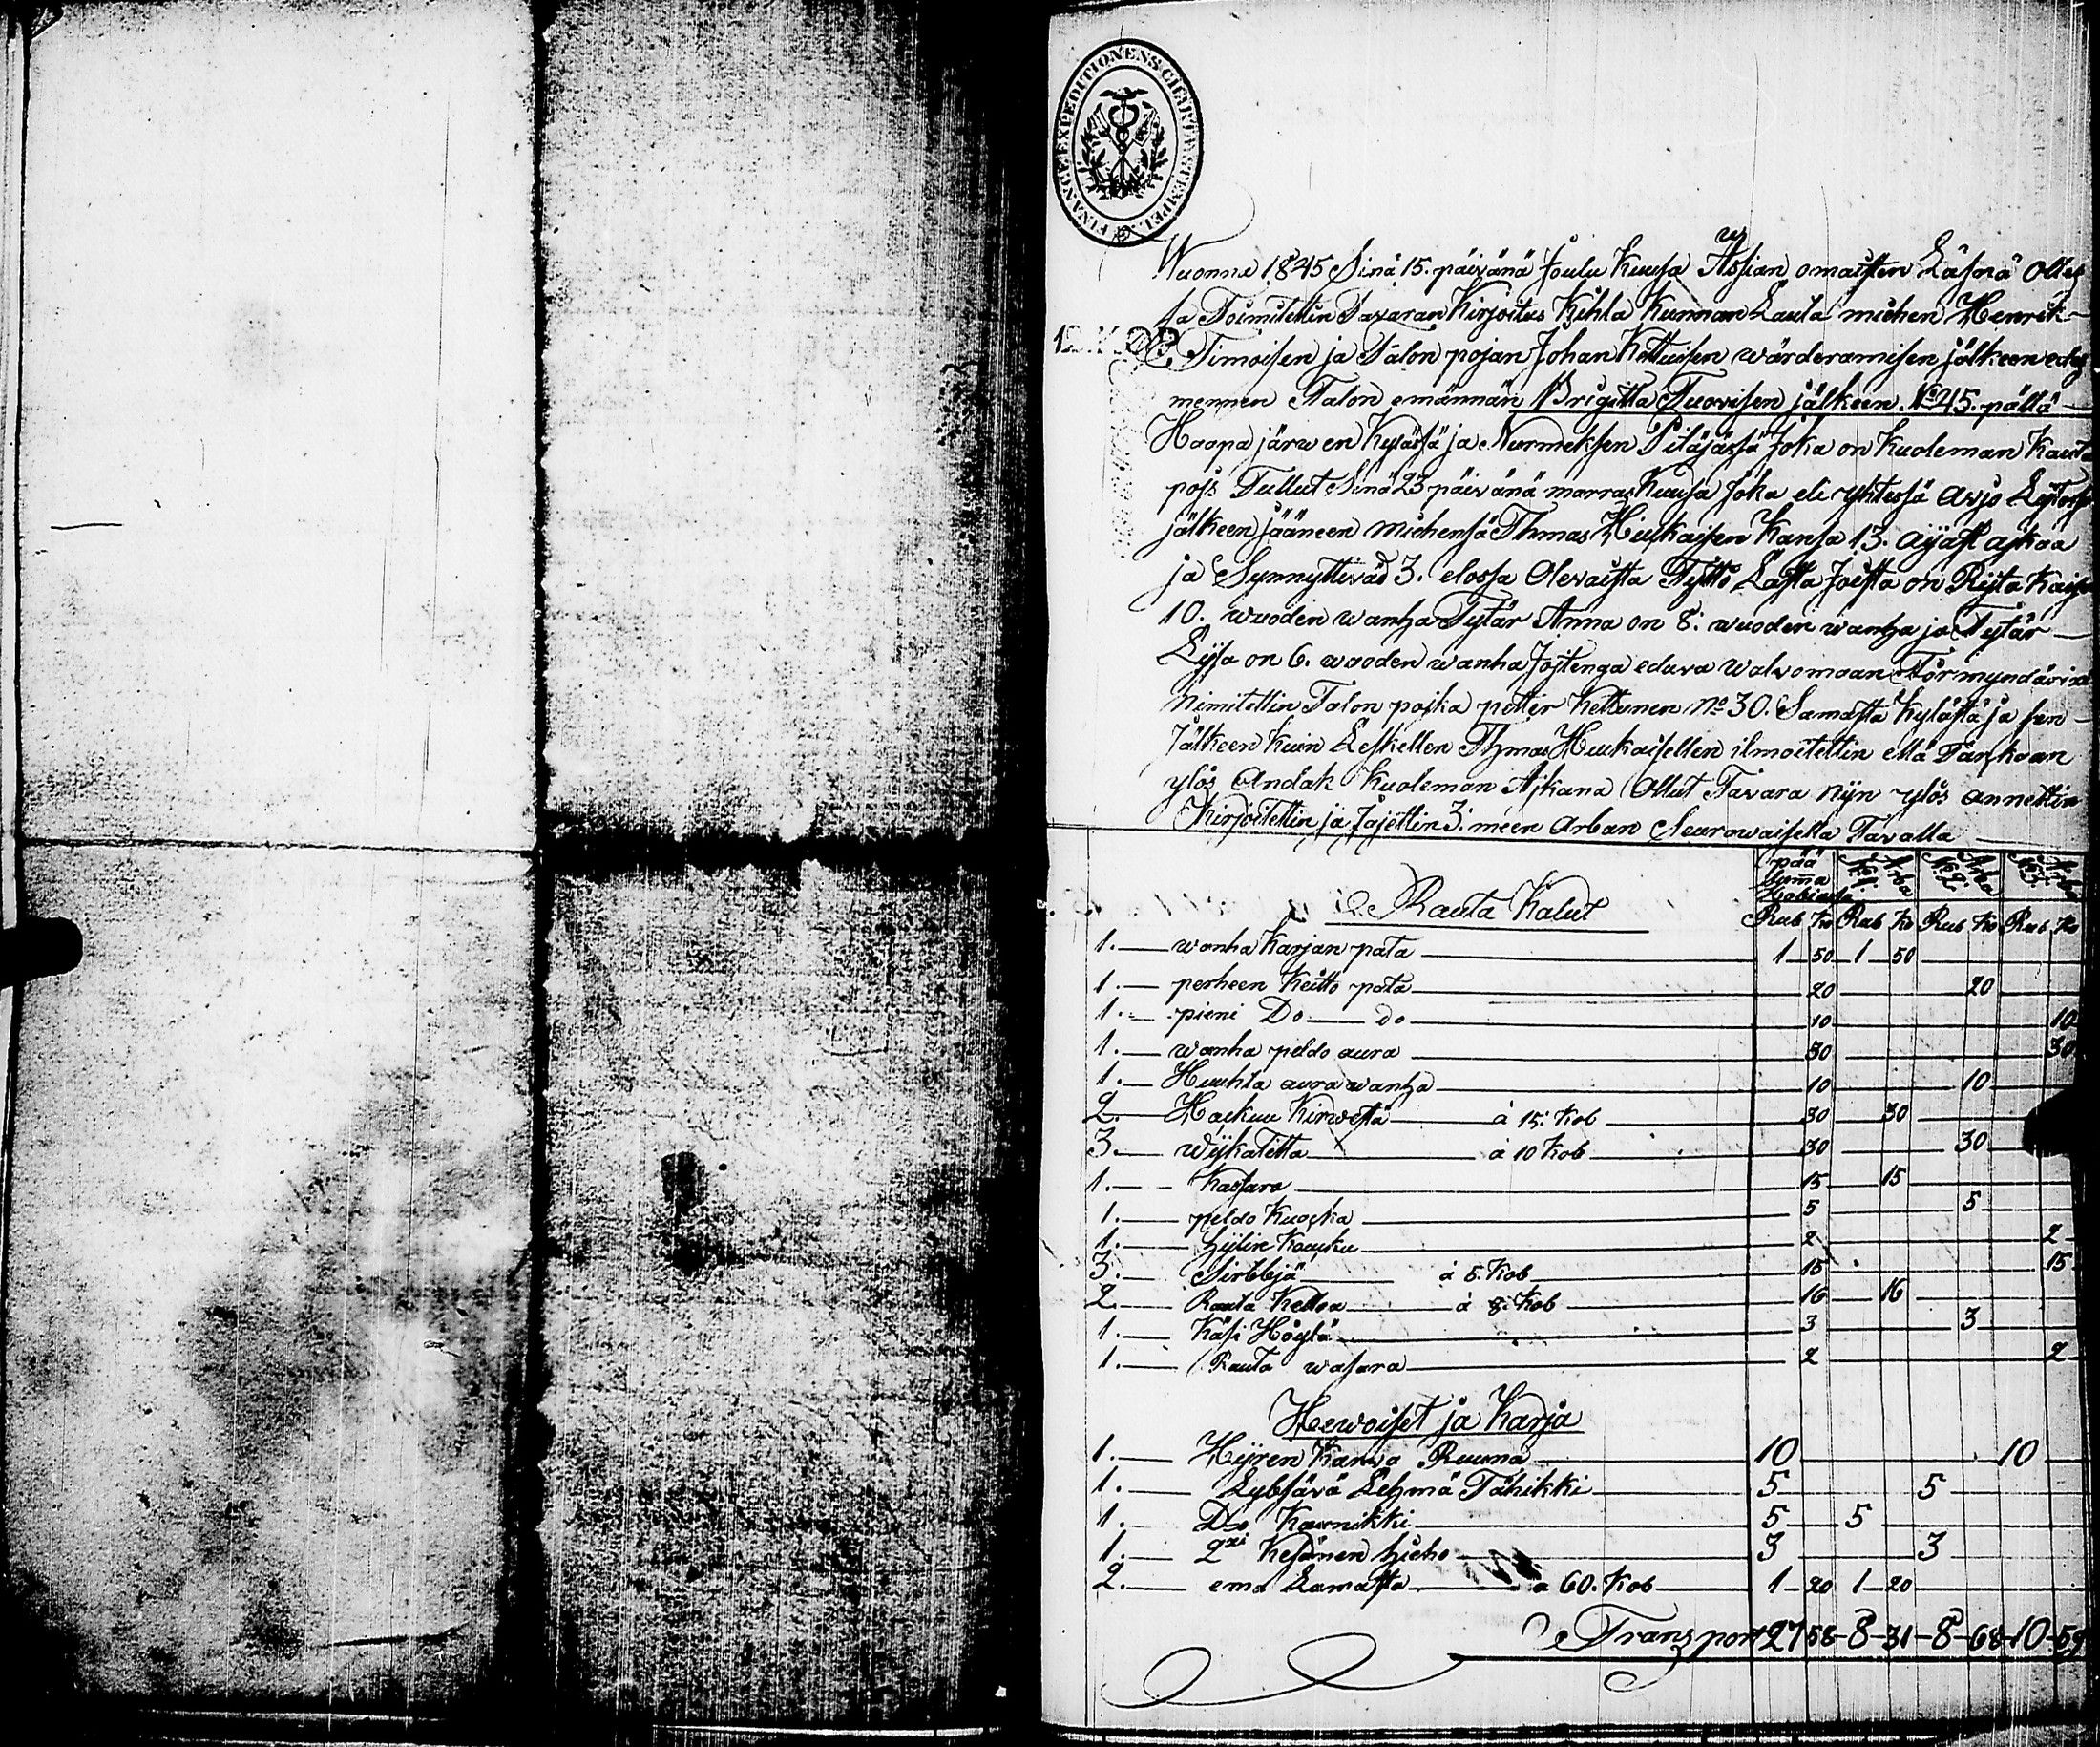 FINANCE EXPEDITIONENS CHARTÆ STEMPEL
Wuonna 1845 Sinä 15. päivänä Joulu Kuusa Assian omaisten Läsnä olles
sa Toimitettin Tavaran Kirjoitus Kihla Kunnan Lauta miehen Henrik
Timoisen ja Talon pojan Johan Kettuisen wärderamisen jälkeen edes
mennen Talon emännän Brigitta Tuovisen jälkeen. No 45. pällä
Haapa järwen Kylässä ja Nurmeksen Pitäjässä Joka on Kuoleman Kauta
pois Tullut Sinä 23 päivänä marras Kuusa Joka eli yhtessä avjo
jälkeen jääneen miehensä Thmas Hiukaisen Kansa 13. ajast ajkaa
ja Synnyttiväd 3. elossa Olevaista Tyttö Lasta Joista on Rijta Kaisa
10. wuoden wanha Tytär Anna on 8. wuoden wanha ja Tytär
Lijsa on 6. wuoden wanha Joitenga edusa walvomaan
Nimitettin Talon pojka petter Kettunen No 30. Samasta Kylästä ja sen
Jälkeen Kuin Leskellen Thmas Hiukaisellen ilmoitettin että Tarkoan
ylös Andak Kuoleman Ajkana Ollut Tavara nijn ylös annettin
Kirjoitettin ja Jajettin 3. meen Arban Seurowaisella Tavalla
pää Summa Arba No 1. Arba No 2. Arba No 3.
Rauta Kalut Rub Ko Rub Ko Rub Ko Rub Ko
1. wanha Karjan pata 1 50 1 50
1. perheen Keitto pata 20 20
1. pieni Do do 10 10
1. wanha peldo aura 30 30
1. Huuhta aura wanha 10 10
2. Hackuu Kirvestä à 15. Kob 30 30
3. Wijkatetta à 10 Kob 30 30
1. Kassara 15 15
1. peldo Kuocka 5 5
1. Hijlin Koucku 2 2
3. Sirbbjä à 5. Kob 15 15
2. Rauta Kelloa à 8. Kob 16 16
1. Käsi Höylä 3 3
1. Rauta wasara 2 2
Hewoiset ja Karja
1. Hijren Karva Ruuna 10 10
1. Lybsävä Lehmä Tähikki 5 5
1. Do Kaunikki 5 5
1. 2xi Kesänen hieho 3 3
2. ema Lamasta a 60. Kob 1 20 1 20
Transport 27 58 8 31 8 68 10 59